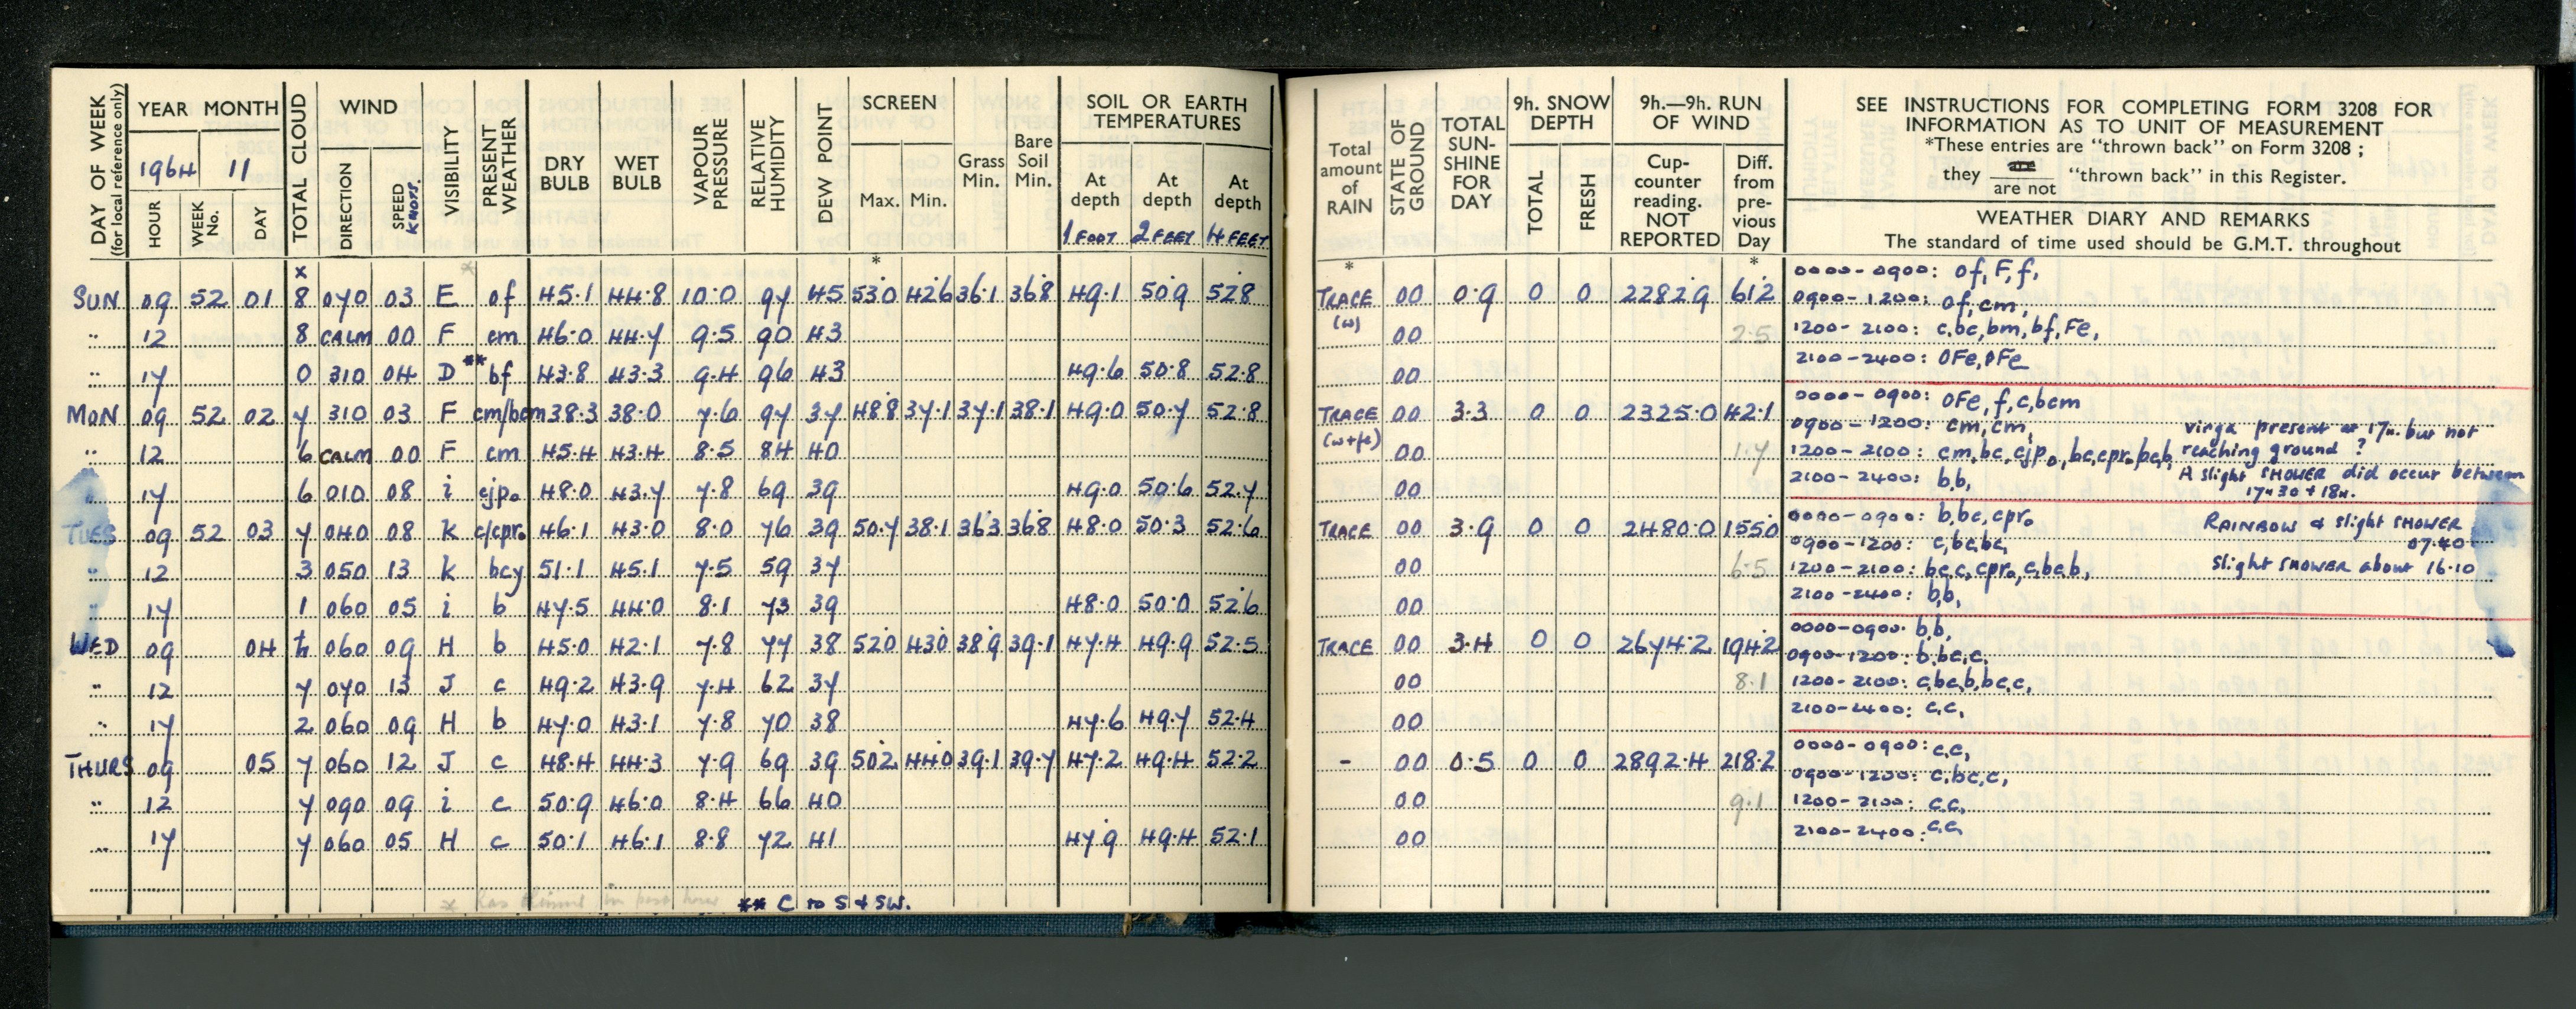 DAY OF WEEK (for local reference only) YEAR MONTH TOTAL CLOUD WIND VISIBILITY PRESENT WEATHER DRY BULB WET BULB VAPOUR PRESSURE RELATIVE HUMIDITY DEW POINT SCREEN Grass Min. Bare Soil Min. SOIL OR EARTH TEMPERATURES
1964 11
HOUR WEEK No. DAY DIRECTION SPEED KNOTS. Max. Min. At depth At depth At depth
1 FOOT 2 FEET 4 FEET
x * *
SUN 09 52 01 8 070 03 E of 45.1 44.8 10.0 97 45 53.0 42.6 36.1 36.8 49.1 50.9 52.8
" 12 8 CALM 00 F cm 46.0 44.7 9.5 90 43
" 17 0 310 04 D ** bf 43.8 43.3 9.4 96 43 49.6 50.8 52.8
MON 09 52 02 7 310 03 F cm/bcm 38.3 38.0 7.6 97 37 48.8 37.1 37.1 38.1 49.0 50.7 52.8
" 12 6 CALM 00 F cm 45.4 43.4 8.5 84 40
" 17 6 010 08 i cjpo 48.0 43.7 7.8 69 39 49.0 50.6 52.7
TUES 09 52 03 7 040 08 K c/cpro 46.1 43.0 8.0 76 39 50.7 38.1 36.3 36.8 48.0 50.3 52.6
" 12 3 050 13 K bcy 51.1 45.1 7.5 59 37
" 17 1 060 05 i b 47.5 44.0 8.1 73 39 48.0 50.0 52.6
WED 09 04 1 060 09 H b 45.0 42.1 7.8 77 38 52.0 43.0 38.9 39.1 47.4 49.9 52.5
" 12 7 070 13 J c 49.2 43.9 7.4 62 37
" 17 2 060 09 H b 47.0 43.1 7.8 70 38 47.6 49.7 52.4
THURS 09 05 7 060 12 J c 48.4 44.3 7.9 69 39 50.2 44.0 39.1 39.7 47.2 49.4 52.2
" 12 7 090 09 i c 50.9 46.0 8.4 66 40
" 17 7 060 05 H c 50.1 46.1 8.8 72 41 47.9 49.4 52.1
* has thinned in past hour ** C to S & SW.
Total amount of RAIN STATE OF GROUND TOTAL SUN-SHINE FOR DAY 9h. SNOW DEPTH 9h.—9h. RUN OF WIND
TOTAL FRESH Cup-counter reading. NOT REPORTED Diff. from pre-vious Day
SEE INSTRUCTIONS FOR COMPLETING FORM 3208 FOR
INFORMATION AS TO UNIT OF MEASUREMENT
*These entries are "thrown back" on Form 3208 ;
they are not "thrown back" in this Register.
WEATHER DIARY AND REMARKS
The standard of time used should be G.M.T. throughout
* *
0000-0900: of, F, f,
TRACE 00 0.9 0 0 2282.9 61.2 0900-1200: of, cm,
(w) 00 2.5 1200-2100: c, bc, bm, bf, Fe,
00 2100-2400: OFe, OFe
TRACE 00 3.3 0 0 2325.0 42.1 0000-0900: OFe, f, c, bcm
(w+fe) 0900-1200: cm, cm, virga present at 17h. but not
00 1.7 1200-2100: cm, bc, cjpo, bc, cpro, bc, b, reaching ground ?
00 2100-2400: b, b, A slight SHOWER did occur between
17h30 + 18h.
TRACE 00 3.9 0 0 2480.0 155.0 0000-0900: b, bc, cpro RAINBOW & slight SHOWER
0900-1200: c, bc, bc, 07.40
00 6.5 1200-2100: bc, c, cpro, c, bc, b, slight SHOWER about 16.10
00 2100-2400: b, b,
0000-0900: b, b,
TRACE 00 3.4 0 0 2674.2 194.2 0900-1200: b, bc, c,
00 8.1 1200-2100: c, bc, b, bc, c,
00 2100-2400: c, c,
0000-0900: c, c,
- 00 0.5 0 0 2892.4 218.2 0900-1200: c, bc, c,
00 9.1 1200-2100: c, c,
00 2100-2400: c, c,